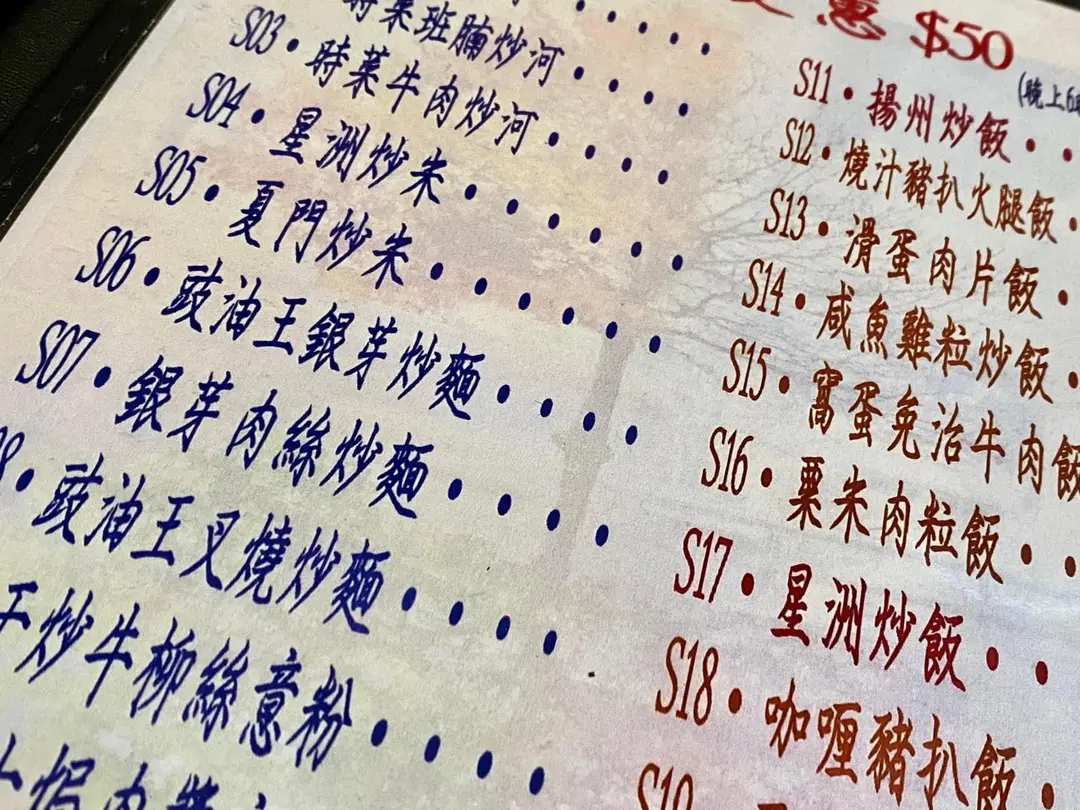 時菜班腩炒河
S03・時菜牛肉炒河
S04・星洲炒朱
S05・夏門炒朱
S06・豉油王銀芽炒麵
S07・銀芽肉絲炒麵
8・豉油王叉燒炒麵
干炒牛柳絲意粉
惠 $50
(晚上6
S11・揚州炒飯
S12・燒汁豬扒火腿飯
S13・滑蛋肉片飯
S14・咸魚雞粒炒飯
S15・窩蛋免治牛肉飯
S16・粟朱肉粒飯
S17・星洲炒飯
S18・咖喱豬扒飯
S19